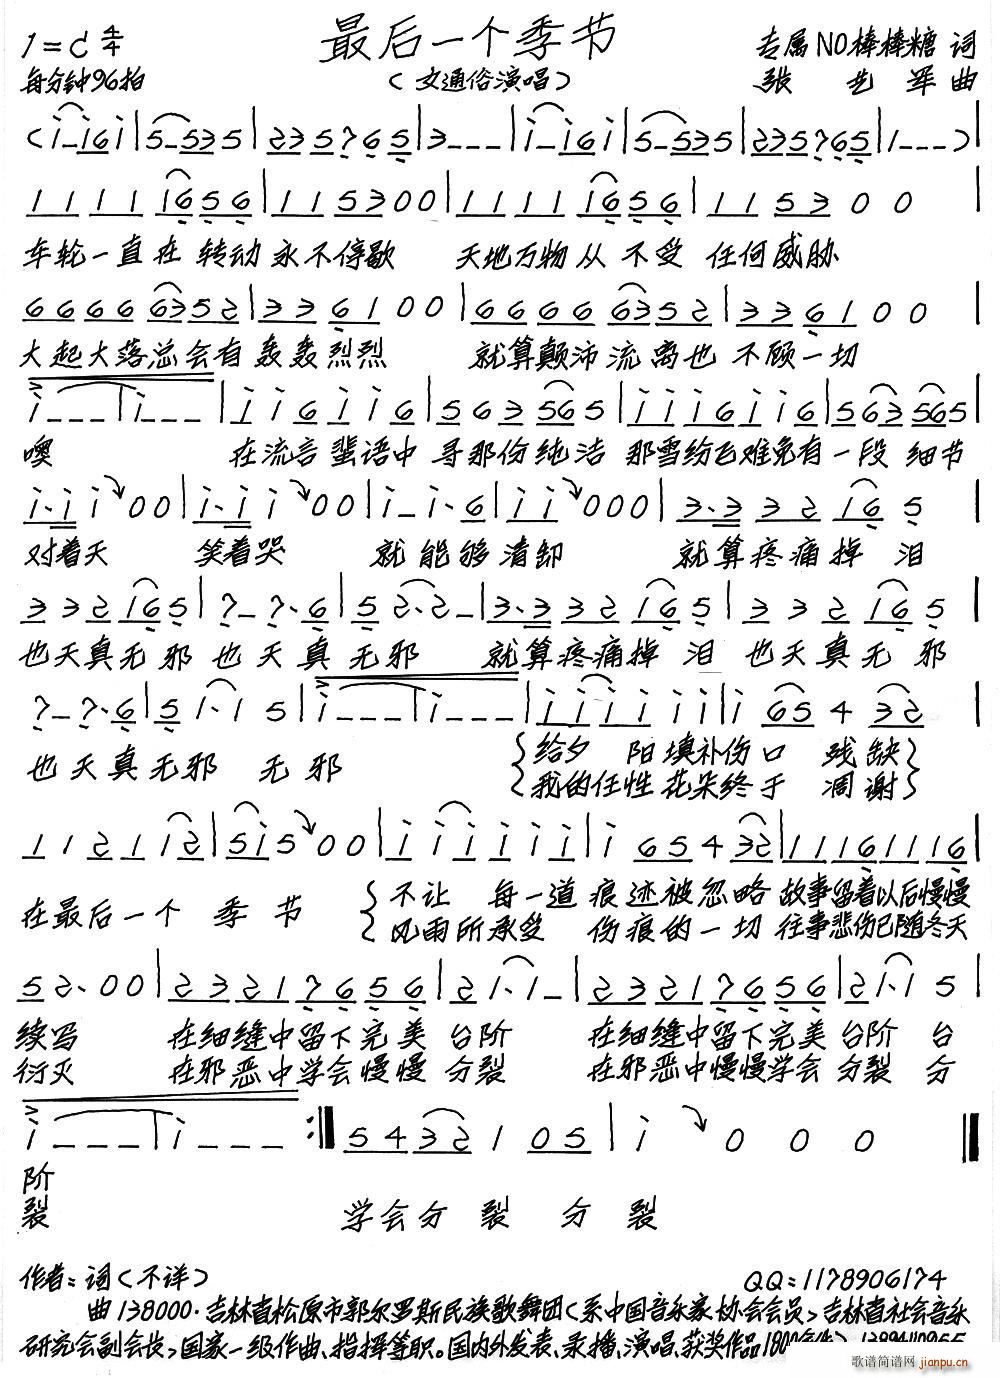 最后一个季节
1=C 4/4
专属NO棒棒糖 词
每分钟96拍
(女通俗演唱)
张艺军 曲
(i-i6i|5-535|2235765|3---|i-i6i|5-535|2235765|1---)|
1111 1656|115300|1111 1656|1153 0 0|
车轮一直在 转动 永不停歇 天地万物从 不受 任何威胁
6666 6352|336100|6666 6352|3361 0 0|
大起大落总会有 轰轰烈烈 就算颠沛流离也 不顾一切
i---|i---|ii6ii6|563565|iii6ii6|563565
噢 在流言蜚语中 寻那份纯洁 那雪纷飞难免有一段 细节
i·ii00|i·ii00|i-i·6|ii000|3·332165
对着天 笑着哭 就能够清卸 就算疼痛掉 泪
332165|7-7·6|52·2-|3·332165|332165|
也天真无邪 也天真无邪 就算疼痛掉 泪 也天真无邪
7-7·6|51·15|i---|i---|iiiiiii|i65432|
也天真无邪 无邪 {给夕 阳填补伤口 残缺}
{我的任性花朵终于 凋谢}
112112|5i500|iiiiii|i65432|11161116|
在最后一个 季节 {不让 每一道痕迹被忽略 故事留着以后慢慢
{风雨所承受 伤痕的一切 往事悲伤已随冬天
52·00|223217656|21·1-|223217656|21·15|
续写 在细缝中留下完美台阶 在细缝中留下完美台阶 台
衍灭 在邪恶中学会慢慢分裂 在邪恶中慢慢学会分裂 分
i---|i---:‖5432105|i000‖
阶
裂 学会分裂 分裂
作者:词(不详) QQ:1178906174
曲138000·吉林省松原市郭尔罗斯民族歌舞团(系中国音乐家协会会员,吉林省社会音乐
研究会副会长,国家一级作曲、指挥等职。国内外发表、录播、演唱、获奖作品
歌谱简谱网 jianpu.cn